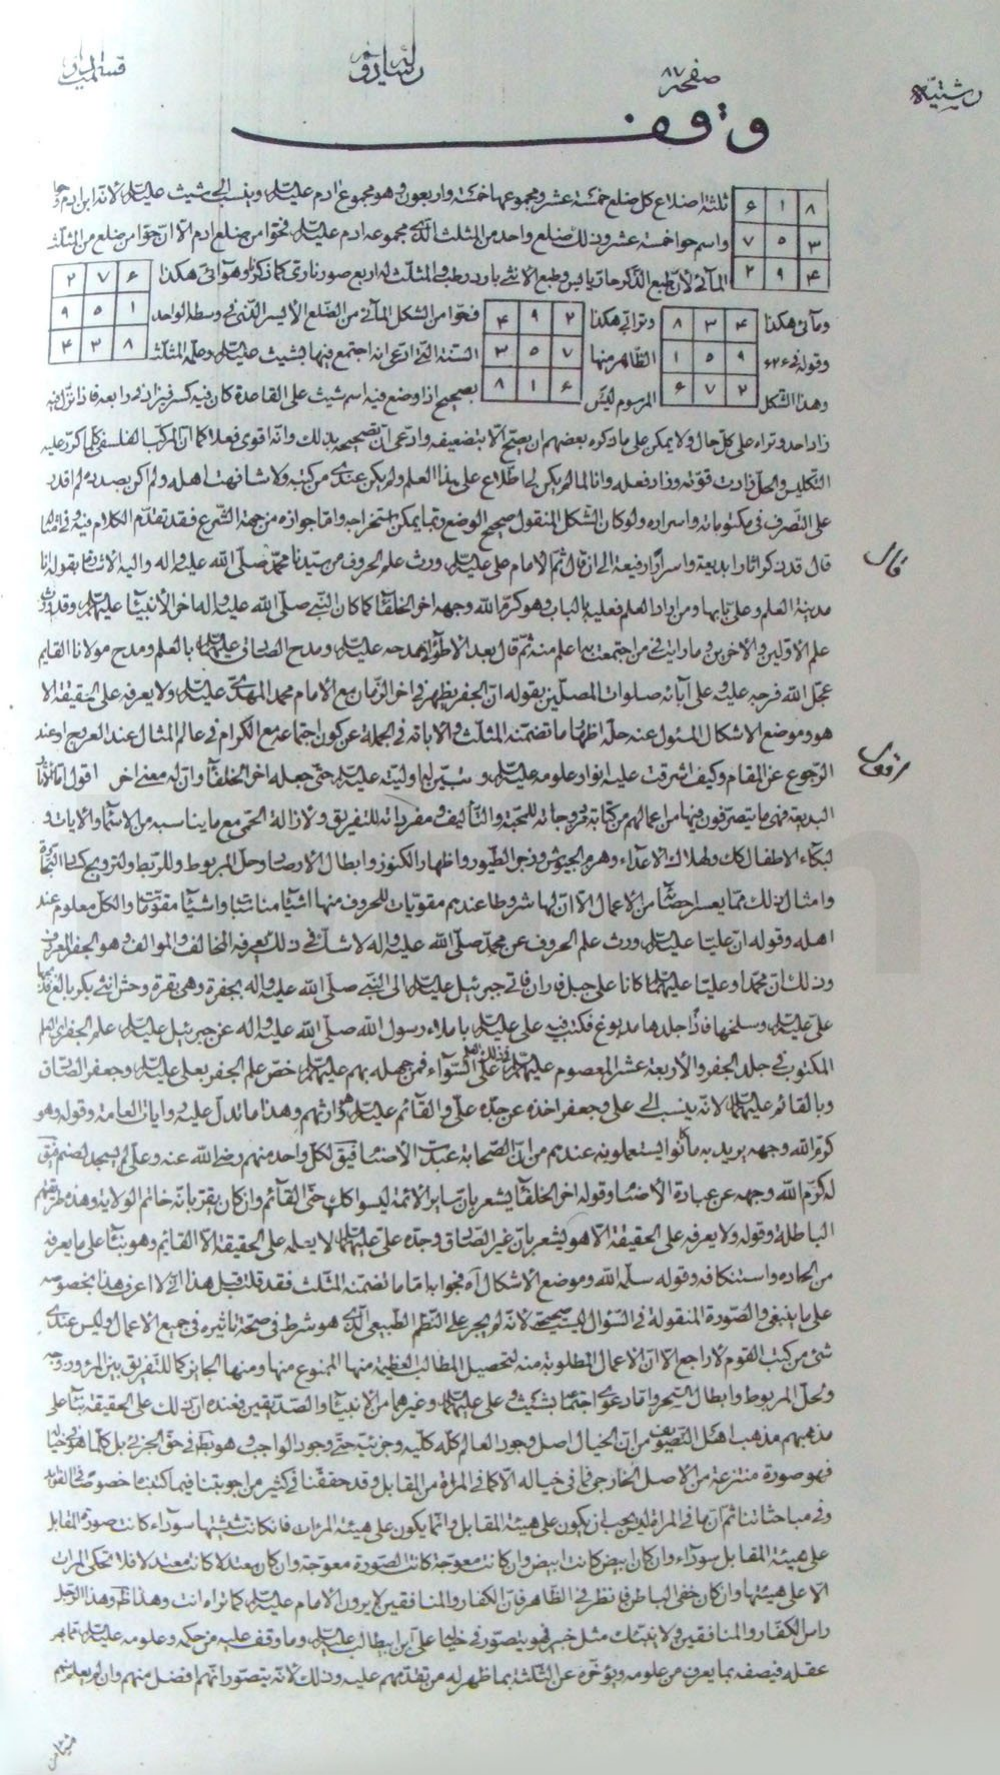 رشتيه
صفحه ٨٧
وقف
٨ ١ ۶
٣ ۵ ٧
۴ ٩ ٢
ثلثة اضلاع كل ضلع خمسة عشر ومجموعها خمسة واربعون وهو مجموع ادم عليه السلم وينسب الى شيث عليه السلم لانه ابن ادم
واسم حوا خمسة عشر وذلك ضلع واحد من المثلث الذى مجموعه ادم عليه السلم فحوا من ضلع ادم الا ان حوا من ضلع من المثلث
المائى لان طبع الذكر حار يابس وطبع الانثى بارد رطب والمثلث له اربع صور نارى كما ذكر وهوائى هكذا
۶ ٧ ٢
١ ۵ ٩
٨ ٣ ۴
ومائى هكذا
۴ ٣ ٨
٩ ۵ ١
٢ ٧ ۶
وترابى هكذا
٢ ٩ ۴
٧ ۵ ٣
۶ ١ ٨
فحوا من الشكل المائى من الضلع الايسر الذى فى وسطه الواحد
وقوله
الظاهر منها
الستة التى ادعى انه اجتمع فيها بشيث عليه السلم وعلمه المثلث
وهذا الشكل المرسوم ليس بصحيح اذا وضع فيه اسم شيث على القاعدة كان فيه كسر
زاد احد وتراه على كل حال ولا يمكن على ما ذكره بعضهم ان يصح الا بتضعيفه وادعى ان تصحيحه بذلك وانه اقوى فعلا كما ان المركب الفلسفى كلما كرر عليه
التكليس والحل زادت قوته وزاد فعله وانا لما لم يكن لى اطلاع على هذا العلم ولم يكن عندى من كتبه ولا شافهت اهله ولم اكن بصدده لم اقدر
على التصرف فى مكتوماته واسراره ولو كان الشكل المنقول صحيح الوضع ربما يمكن استخراجه واما جوازه من جهة الشرع فقد تقدم الكلام فيه
قال
قال قد ذكر اثارا بديعة واسرارا رفيعة الى ان قال ثم الامام على عليه السلم ورث علم الحروف من سيدنا محمد صلى الله عليه واله واليه الاشارة بقوله انا
مدينة العلم وعلى بابها ومن اراد العلم فعليه بالباب وهو كرم الله وجهه اخر الخلفا كما كان النبى صلى الله عليه واله اخر الانبيا عليهم السلم وقد ورث
علم الاولين والاخرين وما رايت فى من اجتمعت بهم اعلم منه ثم قال بعد الاطوار بمدحه عليه السلم ومدح الصادق عليه السلم بالعلم ومدح مولانا القايم
عجل الله فرجه عليه وعلى آبائه صلوات المصلين بقوله ان الجفر يظهر فى اخر الزمان مع الامام محمد المهدى عليه السلم ولا يعرفه على الحقيقة الا
هو وموضع الاشكال المسئول عنه حله اظهار ما تضمنه المثلث والاباقه فى الجملة عن كون اجتماعه مع الكرام فى عالم المثال عند العروج او عند
اقول
الرجوع عن المقام وكيف اشرقت عليه انوار علومه عليه السلم وتبين لها وليته عليه السلم حتى جعله اخر الخلفا وان له معنى اخر اقول
البديعة فهى ما يتصرفون فيها من اعمالهم من كتابة مزوجاته للمحبة والتأليف ومفرداته للتفريق ولازالة الحمى مع ما يناسبه من الاسماء والايات و
لبكاء الاطفال كك ولهلاك الاعداء وهزم الجيوش وزجر الطيور واظهار الكنوز وابطال الارصاد وحل المربوط وللربط ولترويج كساد التجارة
وامثال ذلك مما يعسر احصاؤها من الاعمال الا ان لها شروطا عندهم مقويات للحروف منها اشيا مناسبا واشيا مقويات والكل معلوم عند
اهله وقوله ان عليا عليه السلم ورث علم الحروف عن محمد صلى الله عليه واله لا شك فى ذلك يعرفه المخالف والموالف وهو الجفر المعروف
وذلك ان محمدا وعليا عليهما السلم كانا على جبل فاران فاتى جبرئيل عليه السلم الى النبى صلى الله عليه واله بجفرة وهى بقرة وحش انثى بكر
على عليه السلم وسلخها فاذا جلدها مدبوغ فكتب فيه على عليه السلم باملاء رسول الله صلى الله عليه واله عن جبرئيل عليه السلم علم الجفر
المكتوب فى جلد الجفر والاربعة عشر المعصوم عليهم السلم على السواء فمن جهله بهم عليهم السلم خص علم الجفر بعلى عليه السلم وجعفر الصادق
وبالقائم عليهما السلم لانه ينسب الى على وجعفر اخذه عن جده على والقائم عليه السلم وارثهم وهذا ما تدل عليه روايات العامة وقوله وهو
كرم الله وجهه يريد به ما كانوا يستعملونه عندهم من ان الصحابة عبدت الاصنام فيق لكل واحد منهم رضى الله عنه وعلى لم يسجد لصنم فيق
له كرم الله وجهه عن عبادة الاصنام وقوله اخر الخلفا يشعر بان ساير الائمة ليسوا كك حتى القائم وان كان يقر بانه خاتم الولاية وهذه طريقتهم
الباطلة وقوله ولا يعرفه على الحقيقة الا هو يشعر بان غير الصادق وجده على عليهما السلم لا يعلمه على الحقيقة الا القايم وهو بنا على ما يعرفه
من الحاده واستنكافه وقوله سلمه الله وموضع الاشكال آه فجوابه اما ما تضمنه المثلث فقد قلت قبل هذا انى لا اعرف هذا بخصوصه
على ما ينبغى والصورة المنقولة فى السؤال ليست صحيحة لانه لم يجر على النظم الطبيعى الذى هو شرط فى صحة تاثيره فى جميع الاعمال وليس عندى
شئ من كتب القوم لاراجع الا ان الاعمال المطلوبة منه لتحصيل المطالب العظيمة منها الممنوع منها ومنها الجايز كالتفريق بين المرء وزوجه
ولحل المربوط وابطال السحر واما دعوى اجتماعه بشيث وعلى عليهما السلم وغيرهما من الانبيا والصديقين فعنده ان ذلك على الحقيقة بنا على
مذهبهم مذهب اهل التصوف من ان الخيال اصل وجود العالم كله كليه وجزئيه حتى وجود الواجب وهو نظر فى حق الجزئى بل كلما هو فى خياله
فهو صورة منتزعة من الاصل الخارجى فما فى خياله الا كما فى المرآة من المقابل وقد حققنا فى كثير من اجوبتنا فيما كتبنا خصوصا فى الفوايد
وفى مباحثاتنا ثم ان ما فى المرآة ليس يجب ان يكون على هيئة المقابل وانما يكون على هيئة المرآة فان كانت شديدة سوداء كانت صورة المقابل
على هيئة المقابل سوداء وان كان ابيض كانت ابيض وان كانت معوجة كانت الصورة معوجة وان كان معتدلا كانت معتدلة فلا تحكى المرآت
الا على هيئتها وان كان خفى الباطن فانظر فى الظاهر فان الكفار والمنافقين لا يرون الامام عليه السلم كما تراه انت وهذا ظاهر وهذا الرجل
راس الكفار والمنافقين ولا ينبئك مثل خبير فهو يتصور فى خياله على ابن ابيطالب عليه السلم وما وقف عليه من حكمه وعلومه عليه السلم
عقله فيصفه بما يعرف من علومه ويؤخره عن الثلثة بما ظهر له من تقدمهم عليه وذلك لانه يتصور انهم افضل منهم وان لم يعلم